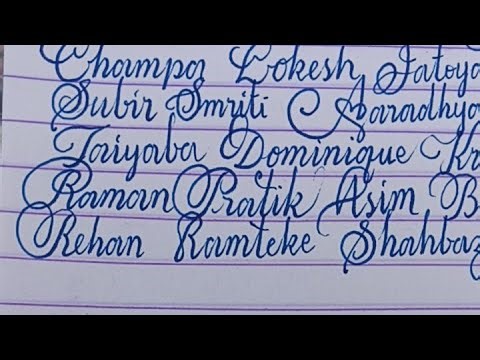 Champa Lokesh Jatoya
Subir Smriti Aaradhya
Taiyaba Dominique Kr
Raman Pratik Asim B
Rehan Ramteke Shahbaz